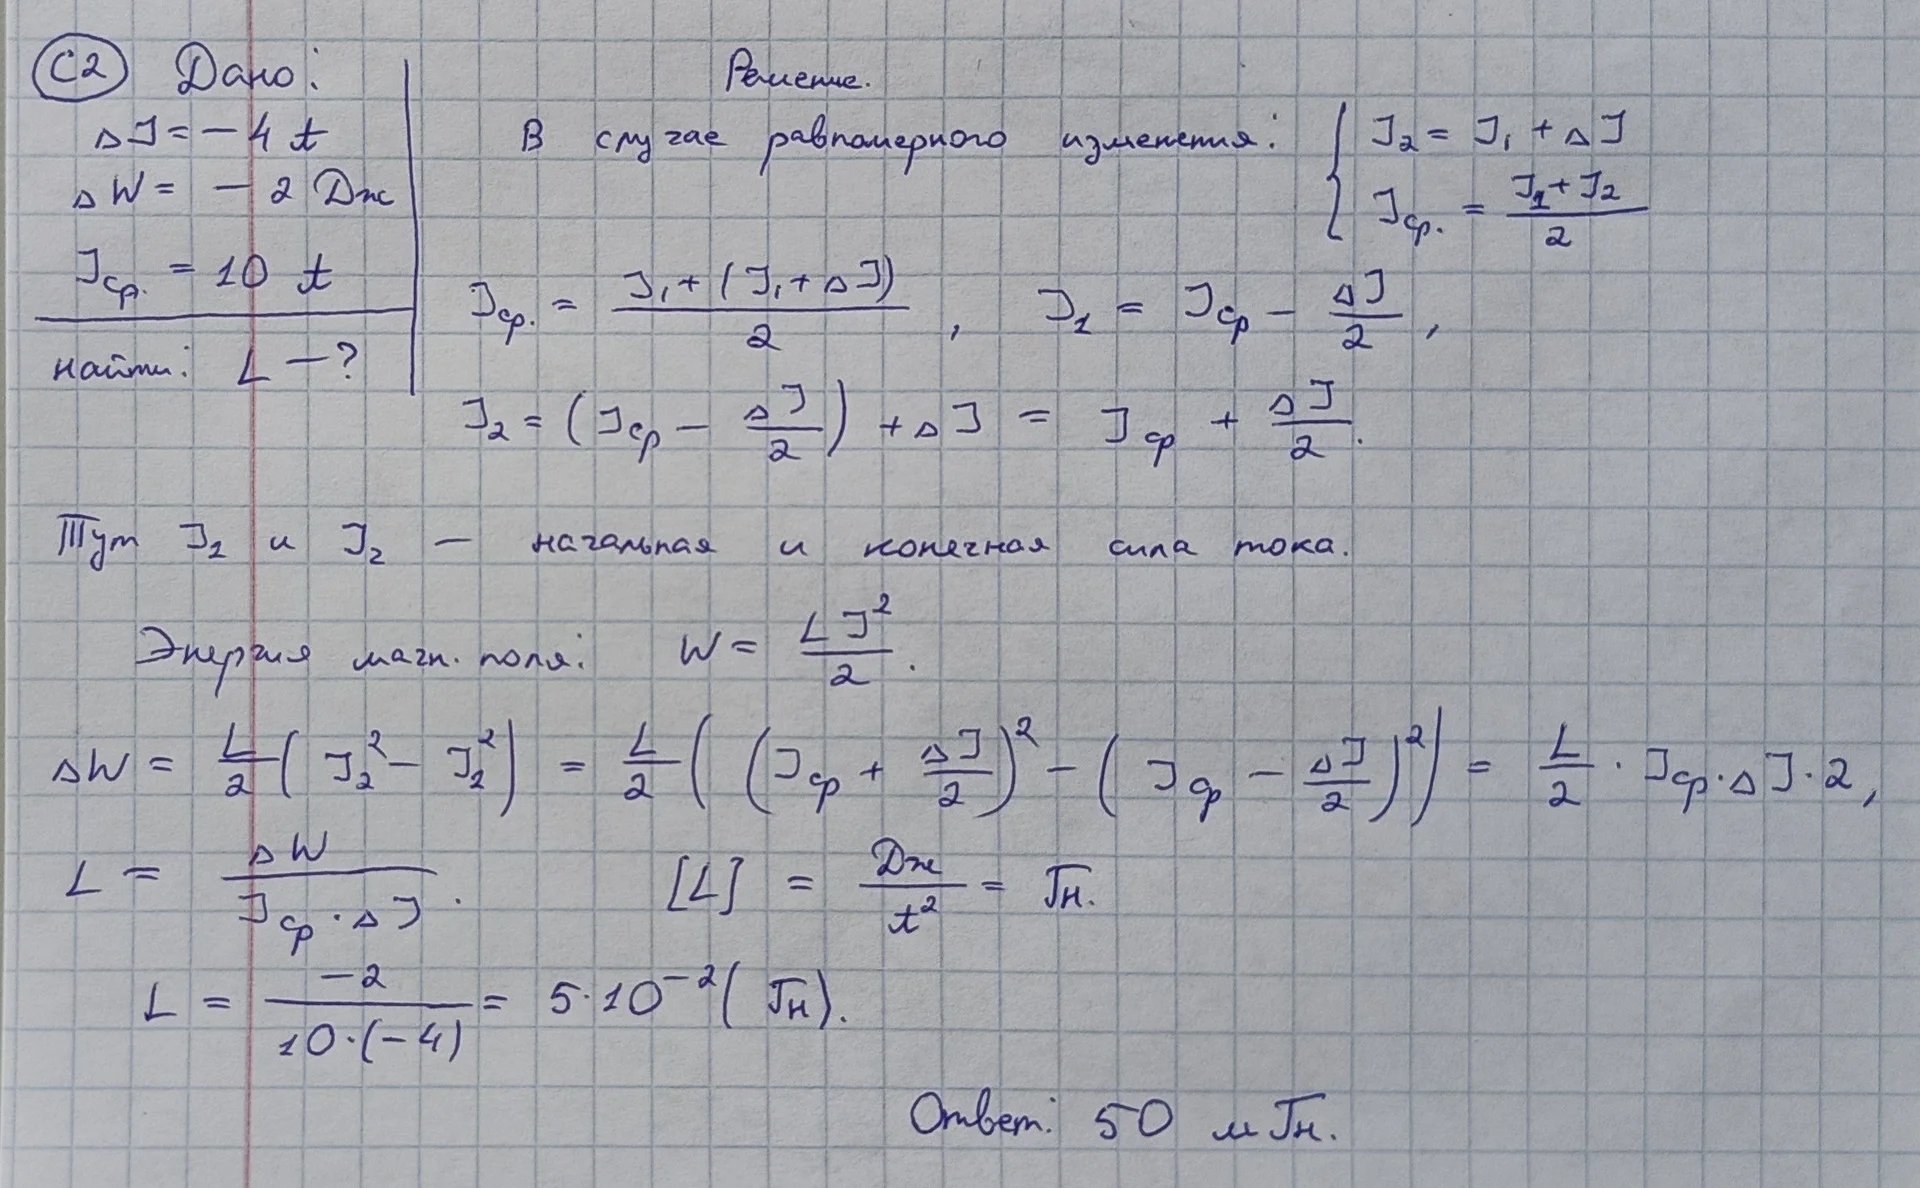 С2 Дано:
ΔI = − 4 t
ΔW = − 2 Дж
Iср. = 10 t
найти: L − ?
Решение.
В случае равномерного изменения: { I₂ = I₁ + ΔI
Iср. = (I₁ + I₂)/2
Iср. = (I₁ + (I₁ + ΔI))/2 , I₁ = Iср − ΔI/2 ,
I₂ = (Iср − ΔI/2) + ΔI = Iср + ΔI/2.
Тут I₁ и I₂ — начальная и конечная сила тока.
Энергия магн. поля: W = LI²/2.
ΔW = L/2 (I₂² − I₂²) = L/2 ((Iср + ΔI/2)² − (Iср − ΔI/2)²) = L/2 · Iср · ΔI · 2 ,
L = ΔW/(Iср · ΔI). [L] = Дж/t² = Гн.
L = −2/(10·(−4)) = 5·10⁻² (Гн).
Ответ: 50 мГн.